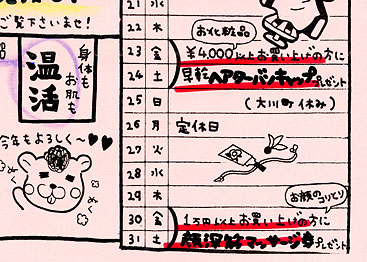 ご覧下さいませ
身体も
お肌も
温活
今年もよろしく〜♥♥
ぬく
ぬく
21 水
22 木
お化粧品
23 金 ¥4,000以上お買い上げの方に
24 土 早乾ヘアターバンキャッププレゼント
25 日 (大川町休み)
26 月 定休日
27 火
28 水
29 木
お顔のコリとり
30 金 1万円以上お買い上げの方に
31 土 顔深筋マッサージ券プレゼント